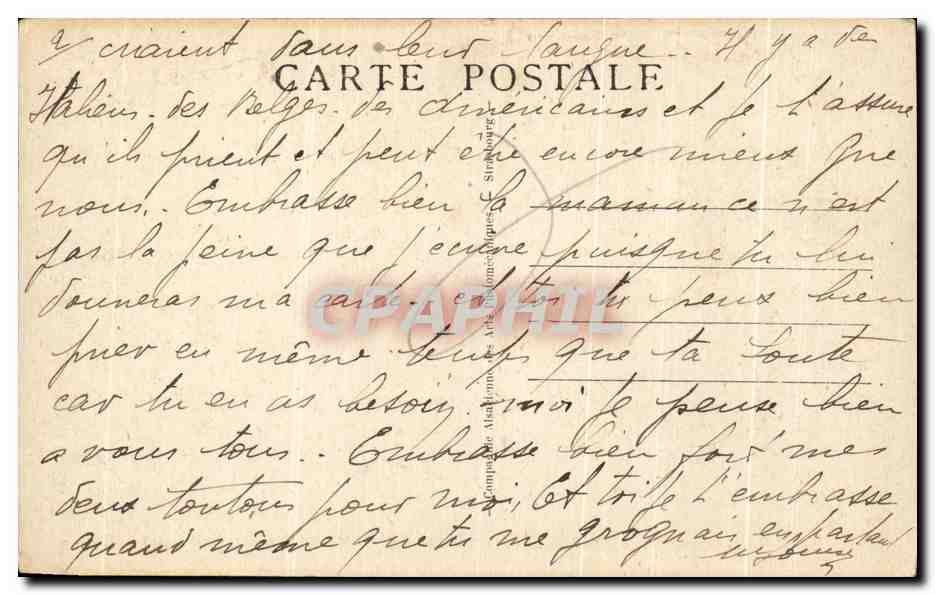 2/ criaient dans leur langue.. Il y a des
CARTE POSTALE
Italiens. des Belges. des Americains et je t'assure
qu'ils prient et peut etre encore mieux que
nous.. Embrasse bien la maman ce n'est
pas la peine que j'ecrive puisque tu lui
donneras ma carte. et toi tu peux bien
prier en même temps que ta Soute
car tu en as besoin. moi je pense bien
a vous tous.. Embrasse bien fort mes
deux toutous pour moi, Et toi je t'embrasse
quand même que tu me grognais en partant
Compagnie Alsacienne des Arts Photomécaniques, Strasbourg
CPAPHIL